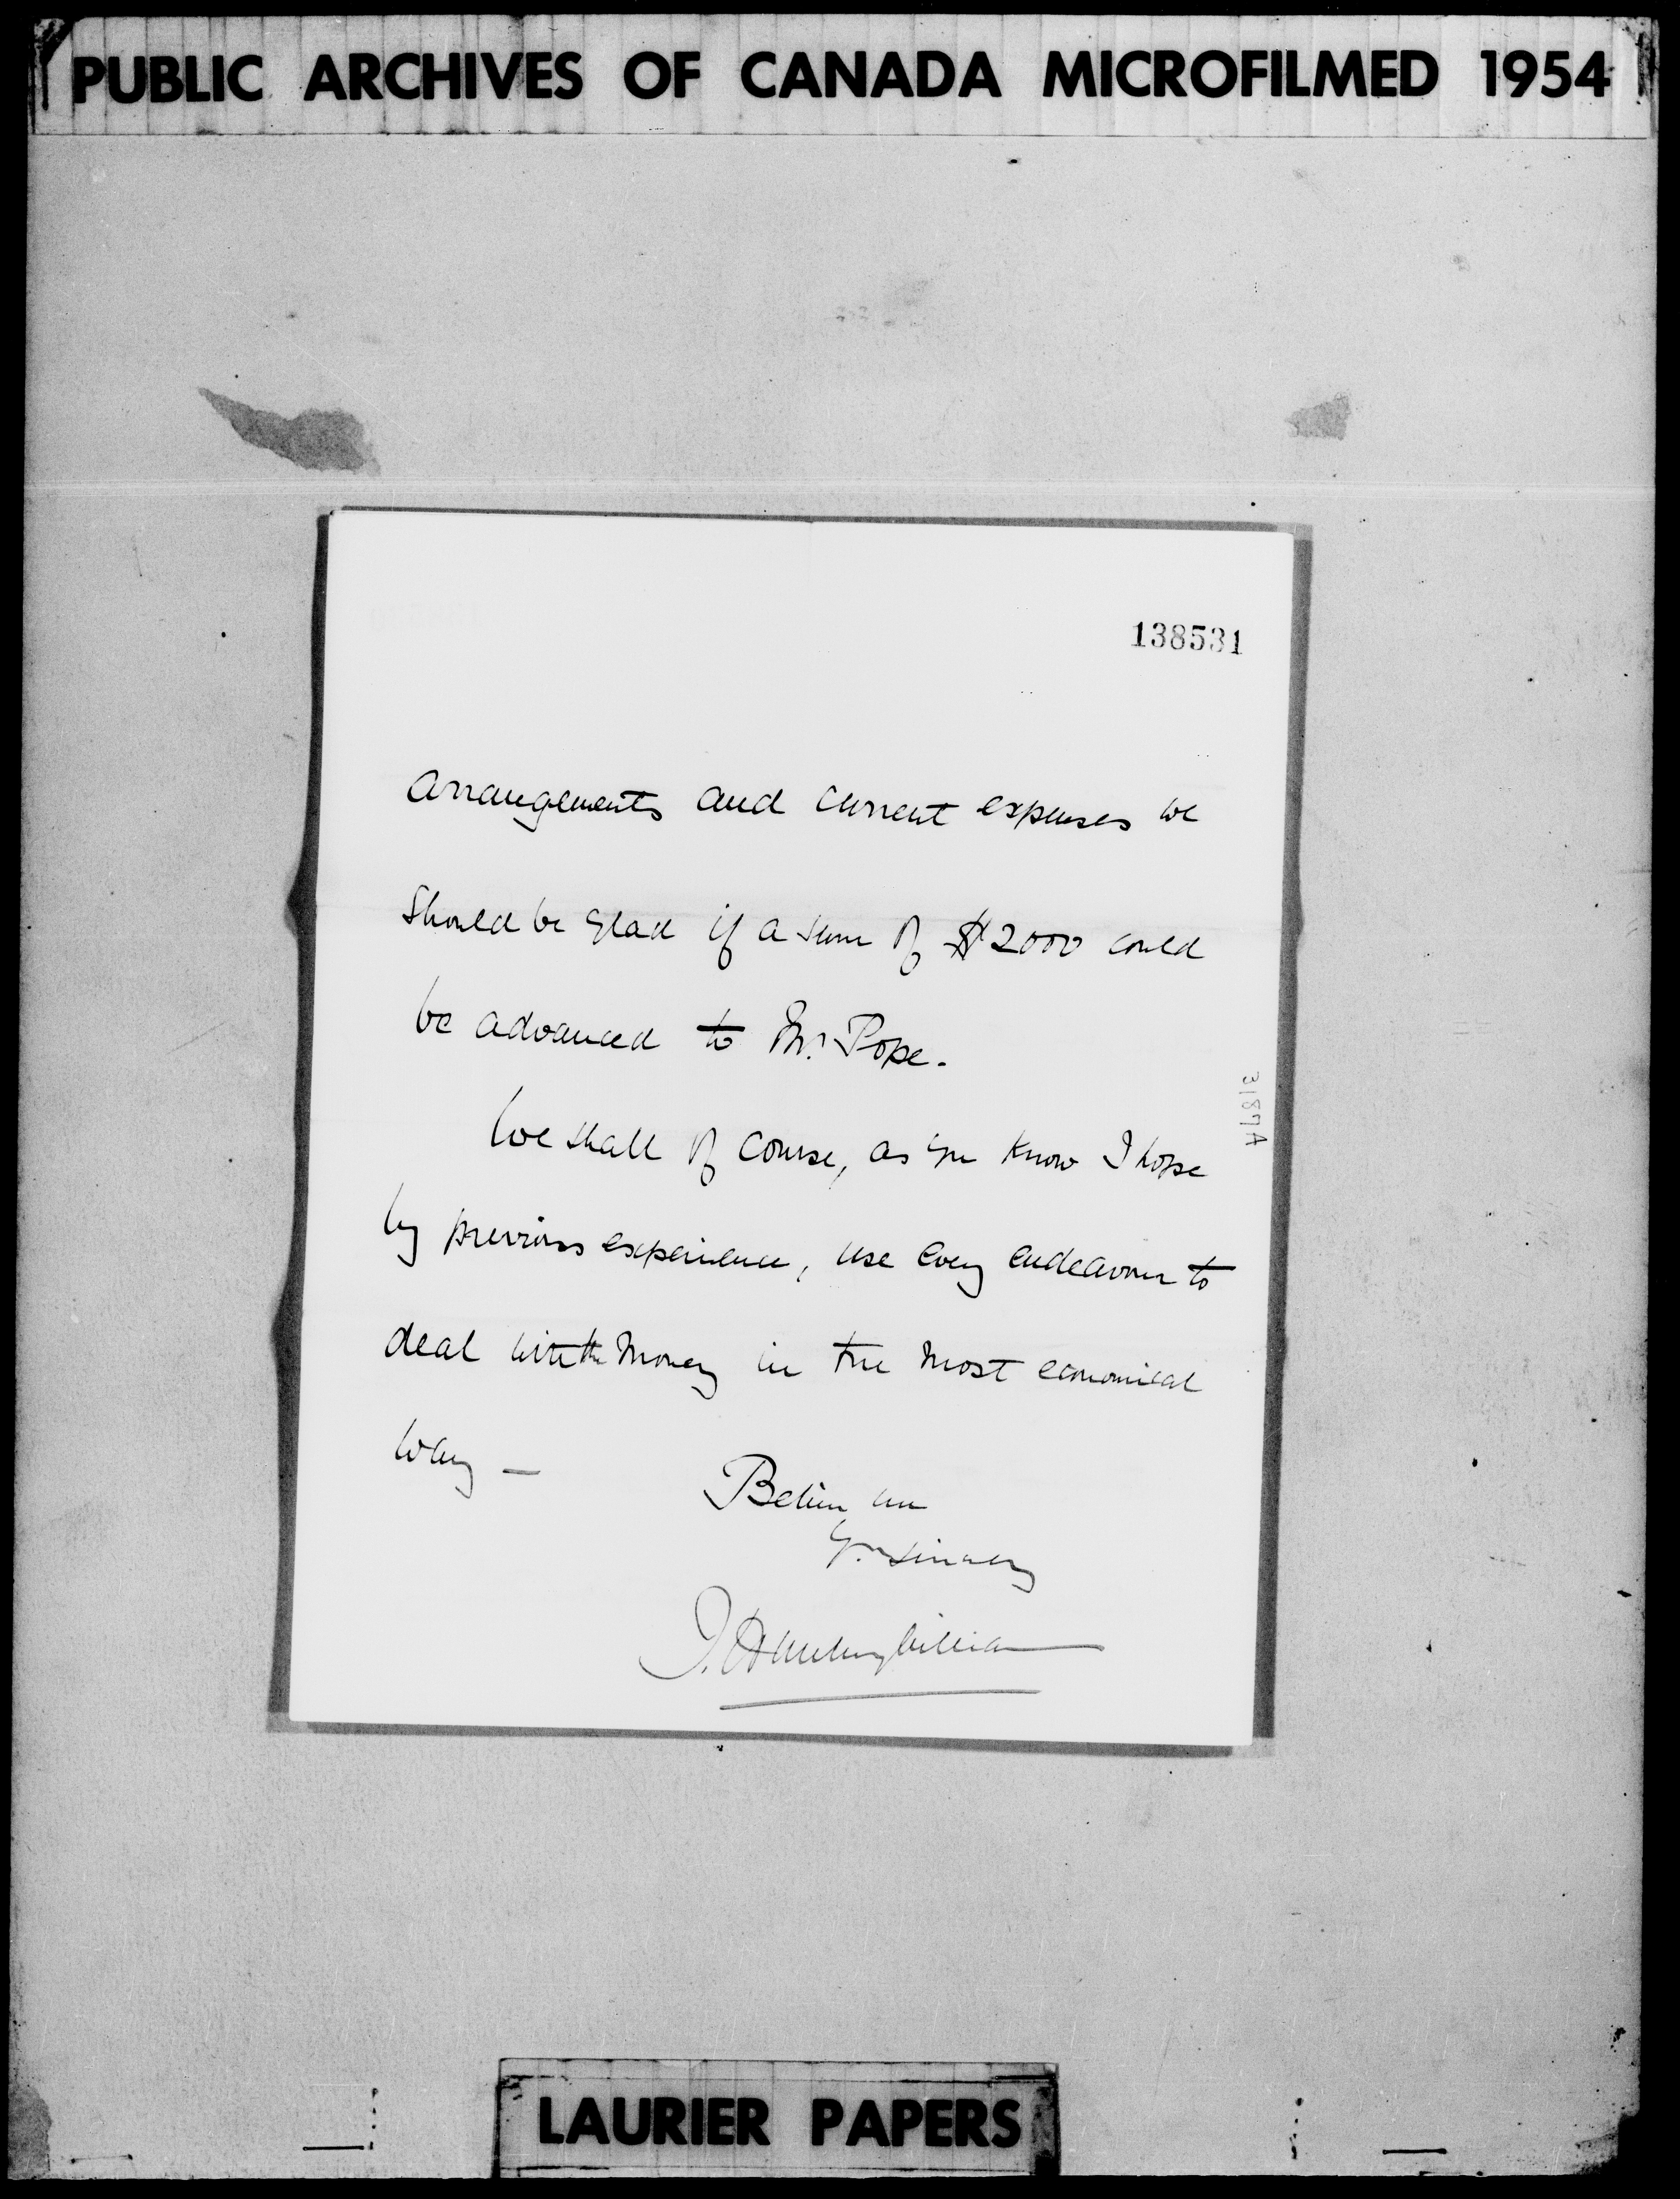 PUBLIC ARCHIVES OF CANADA MICROFILMED 1954
138531
arrangements and current expenses we
should be glad if a sum of $2000 could
be advanced to Mr. Pope.
We shall of course, as you know I hope
by previous experience, use every endeavour to
deal with the money in the most economical
way —
Believe me
Yrs sincerely
31877A
LAURIER PAPERS